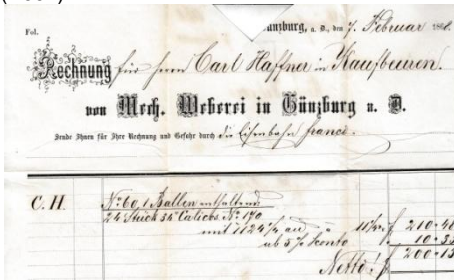 Fol.
Günzburg, a. D., den 7. Februar 188
Rechnung für Herrn Carl Haffner in Kaufbeuren.
von Mech. Weberei in Günzburg a. D.
Sende Ihnen für Ihre Rechnung und Gefahr durch die Eisenbahn franco.
C. H. No 60, 1 Ballen enthaltend
24 Stück 34 Calicos No 170
mit 1124 ½ au 210.
ab 5 % Sconto 10.
Netto: f 200.